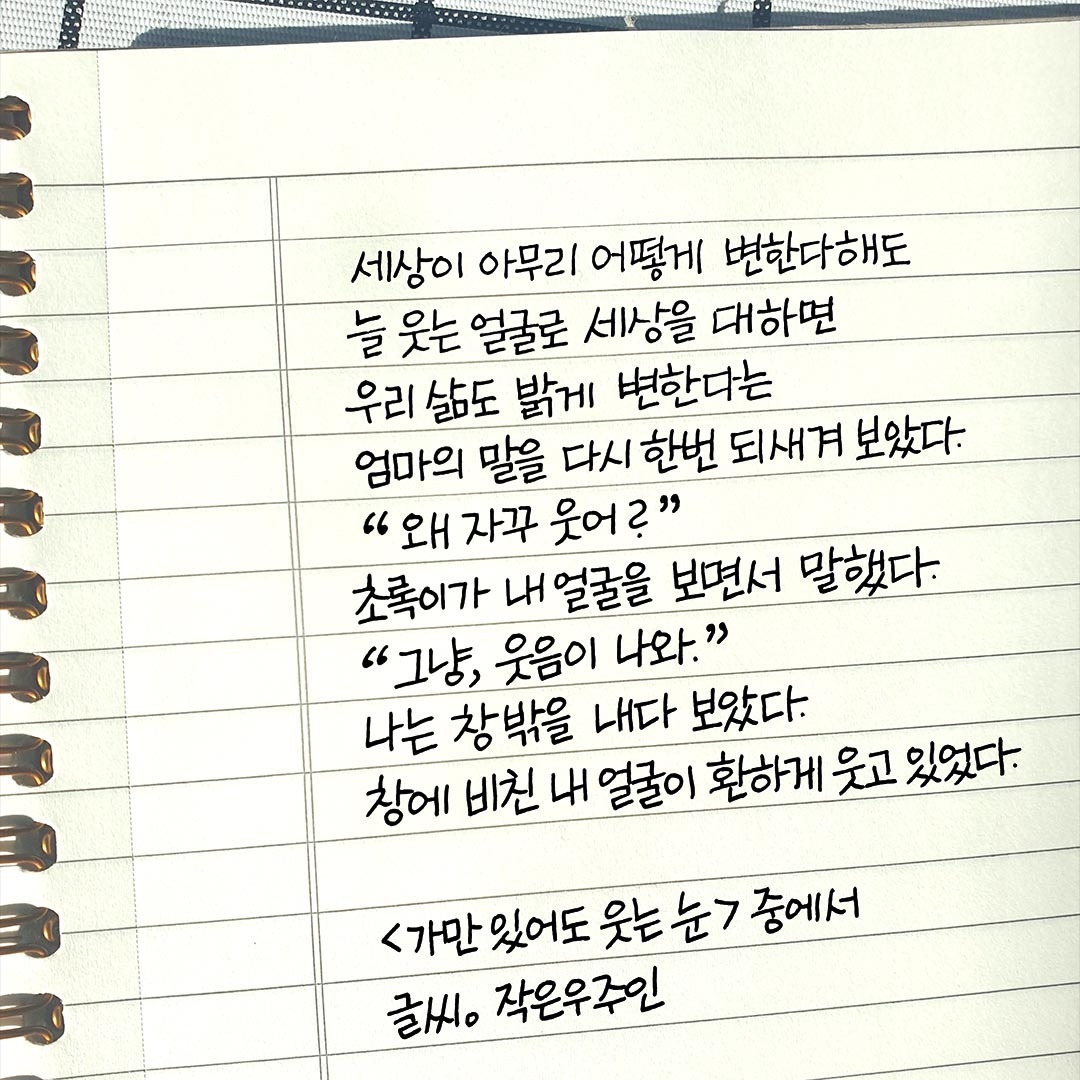 세상이 아무리 어떻게 변한다해도
늘 웃는 얼굴로 세상을 대하면
우리 삶도 밝게 변한다는
엄마의 말을 다시 한번 되새겨 보았다.
“왜 자꾸 웃어?”
초록이가 내 얼굴을 보면서 말했다.
“그냥, 웃음이 나와.”
나는 창밖을 내다 보았다.
창에 비친 내 얼굴이 환하게 웃고 있었다.
<가만 있어도 웃는 눈> 중에서
글씨。 작은우주인